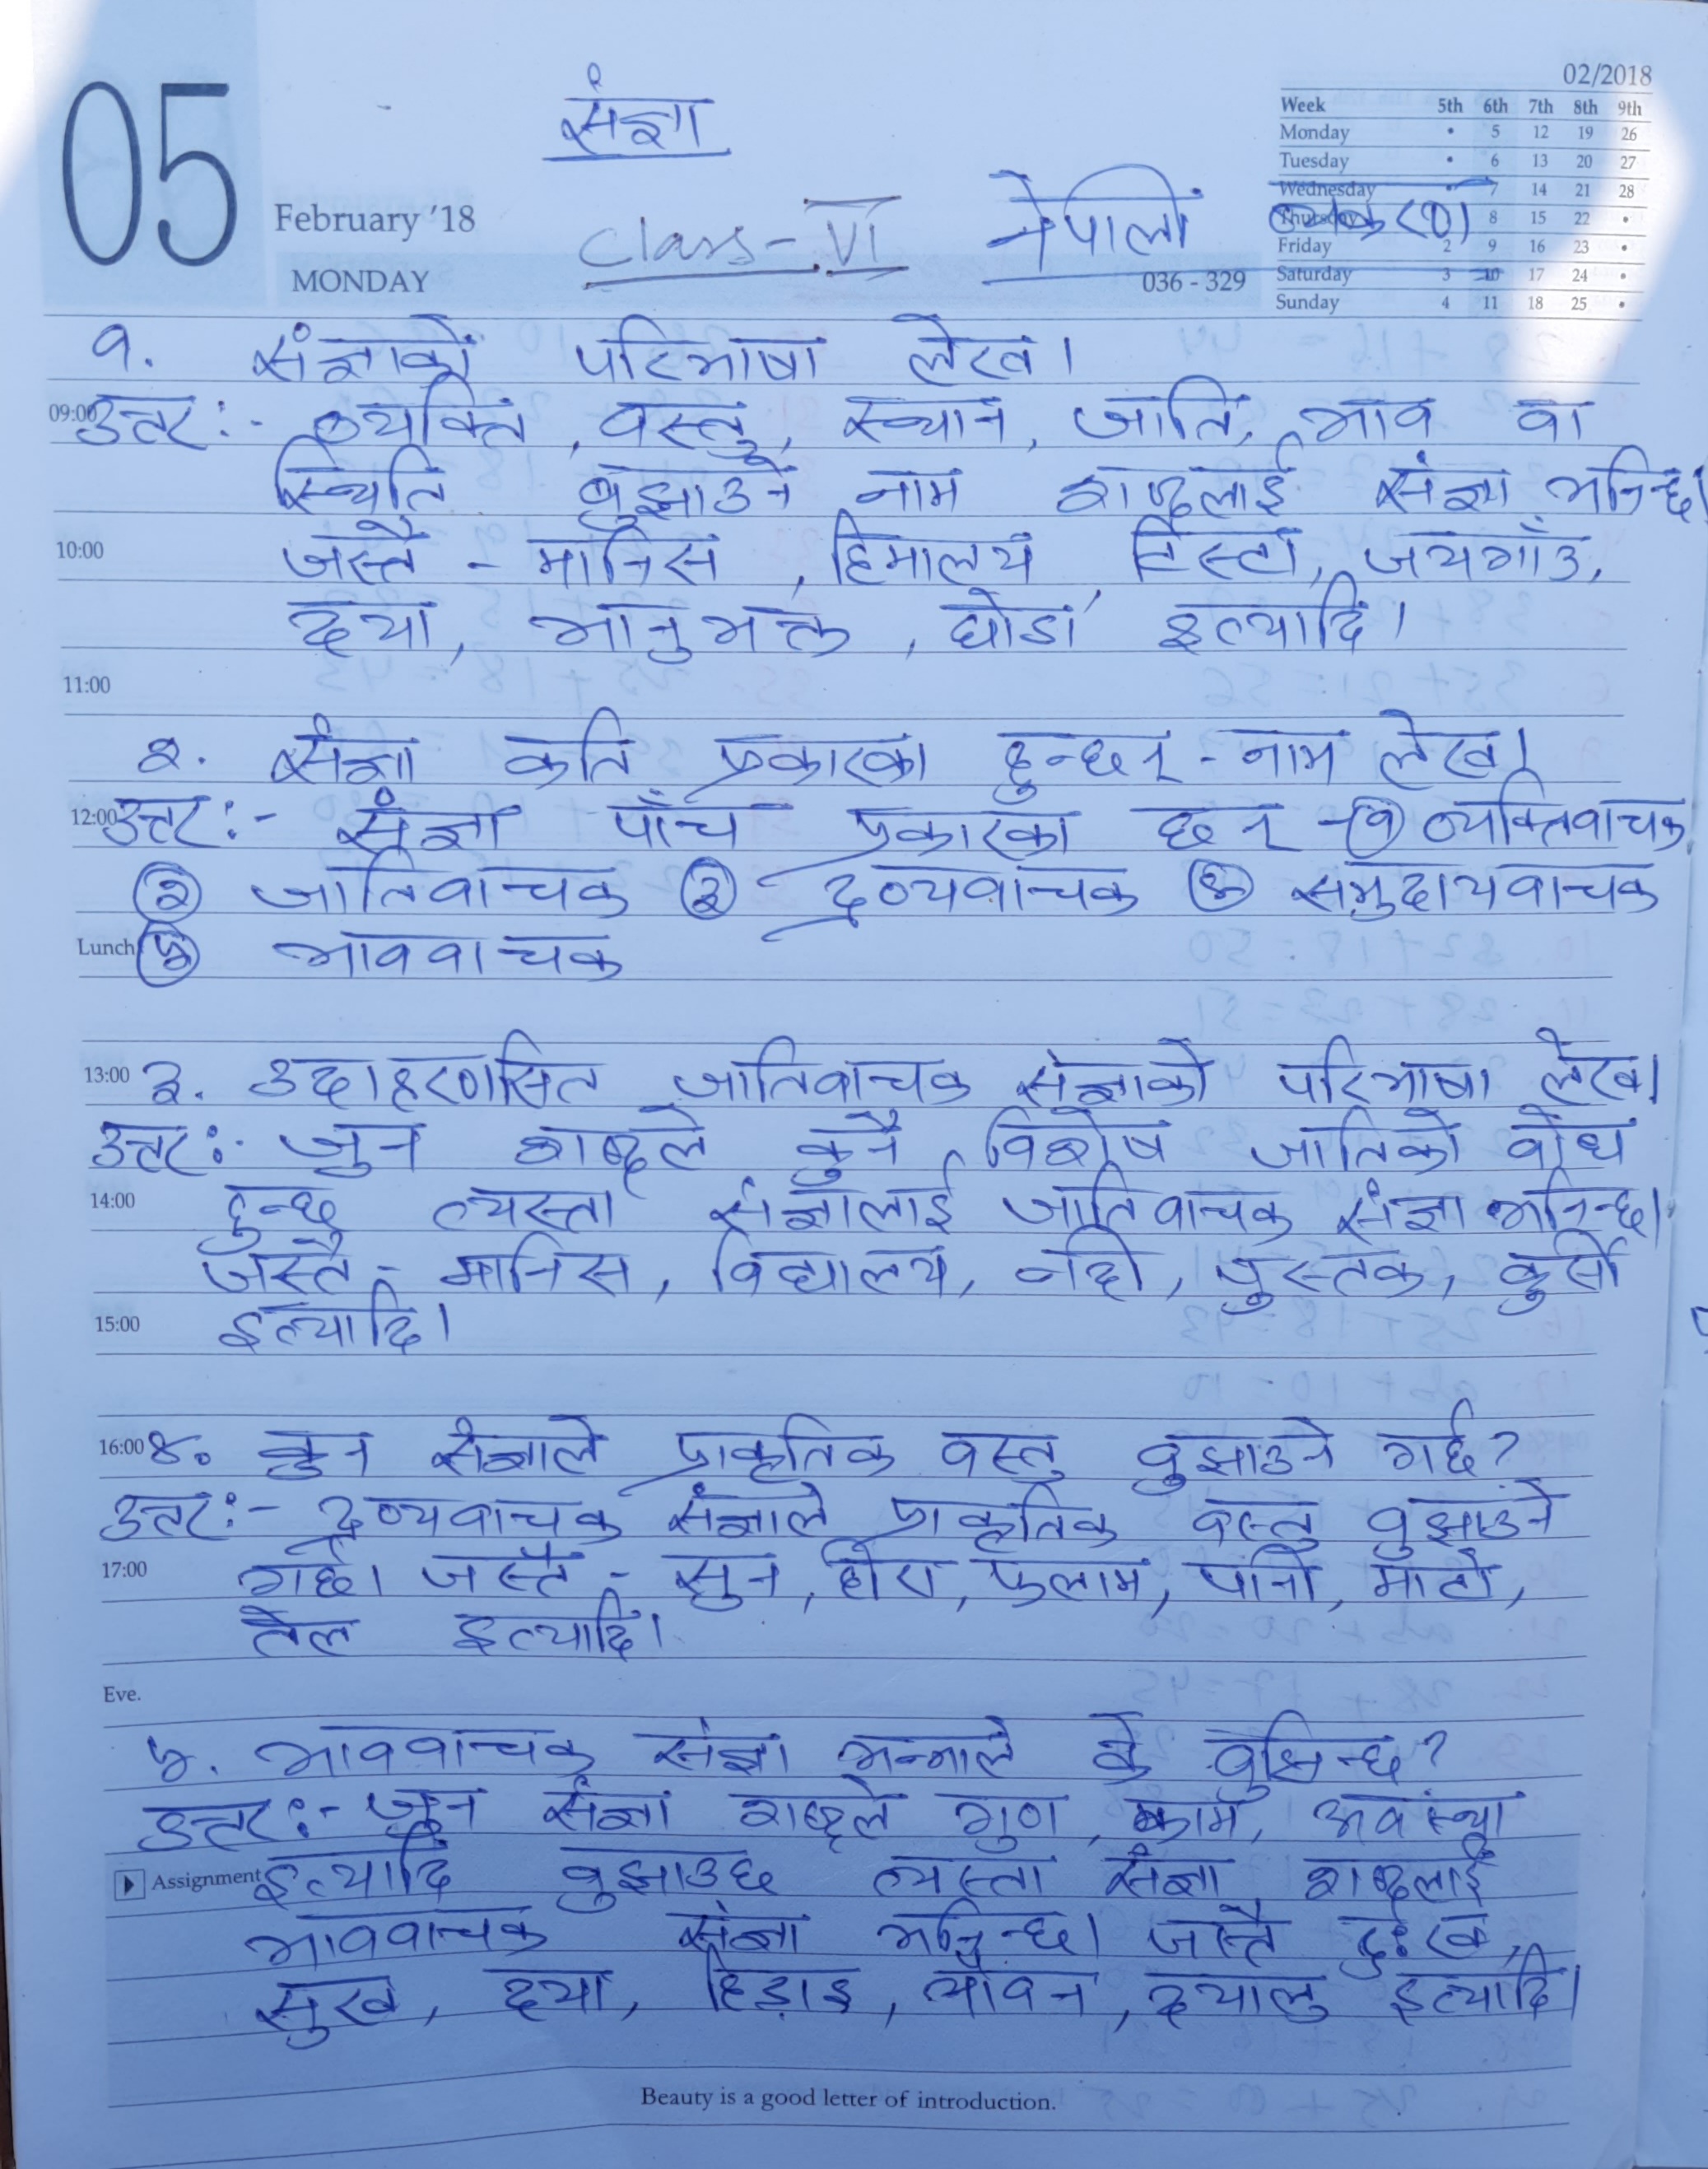 05
संज्ञा
02/2018
Week 5th 6th 7th 8th 9th
Monday • 5 12 19 26
Tuesday • 6 13 20 27
Wednesday • 7 14 21 28
Thursday 8 15 22 •
Friday 2 9 16 23 •
Saturday 3 10 17 24 •
Sunday 4 11 18 25 •
February '18
Class - VI नेपाली व्याकरण
MONDAY
036 - 329
१. संज्ञाको परिभाषा लेख।
09:00 उत्तर:- व्यक्ति, वस्तु, स्थान, जाति, भाव वा
स्थिति बुझाउने नाम शब्दलाई संज्ञा भनिन्छ।
10:00 जस्तै - मानिस, हिमालय, टिस्टा, जयगाँउ,
दया, भानुभक्त, घोडा इत्यादि।
11:00
२. संज्ञा कति प्रकारका हुन्छन् - नाम लेख।
12:00 उत्तर:- संज्ञा पाँच प्रकारका छन् - (१) व्यक्तिवाचक,
(२) जातिवाचक (३) द्रव्यवाचक (४) समुदायवाचक
Lunch (५) भाववाचक
13:00 ३. उदाहरणसित जातिवाचक संज्ञाको परिभाषा लेख।
उत्तर:- जुन शब्दले कुनै विशेष जातिको बोध
14:00 हुन्छ त्यस्ता संज्ञालाई जातिवाचक संज्ञा भनिन्छ।
जस्तै - मानिस, विद्यालय, नदी, पुस्तक, कुर्सी
15:00 इत्यादि।
16:00 ४. कुन संज्ञाले प्राकृतिक वस्तु वुझाउने गर्छ?
उत्तर:- द्रव्यवाचक संज्ञाले प्राकृतिक वस्तु वुझाउने
17:00 गर्छ। जस्तै - सुन, हीरा, फलाम, पानी, माटो,
तेल इत्यादि।
Eve.
५. भाववाचक संज्ञा भन्नाले के वुझिन्छ?
उत्तर:- जुन संज्ञा शब्दले गुण, काम, अवस्था
Assignment इत्यादि वुझाउछ त्यस्ता संज्ञा शब्दलाई
भाववाचक संज्ञा भनिन्छ। जस्तै दु:ख,
सुख, दया, हिडाइ, यौवन, दयालु इत्यादि।
Beauty is a good letter of introduction.